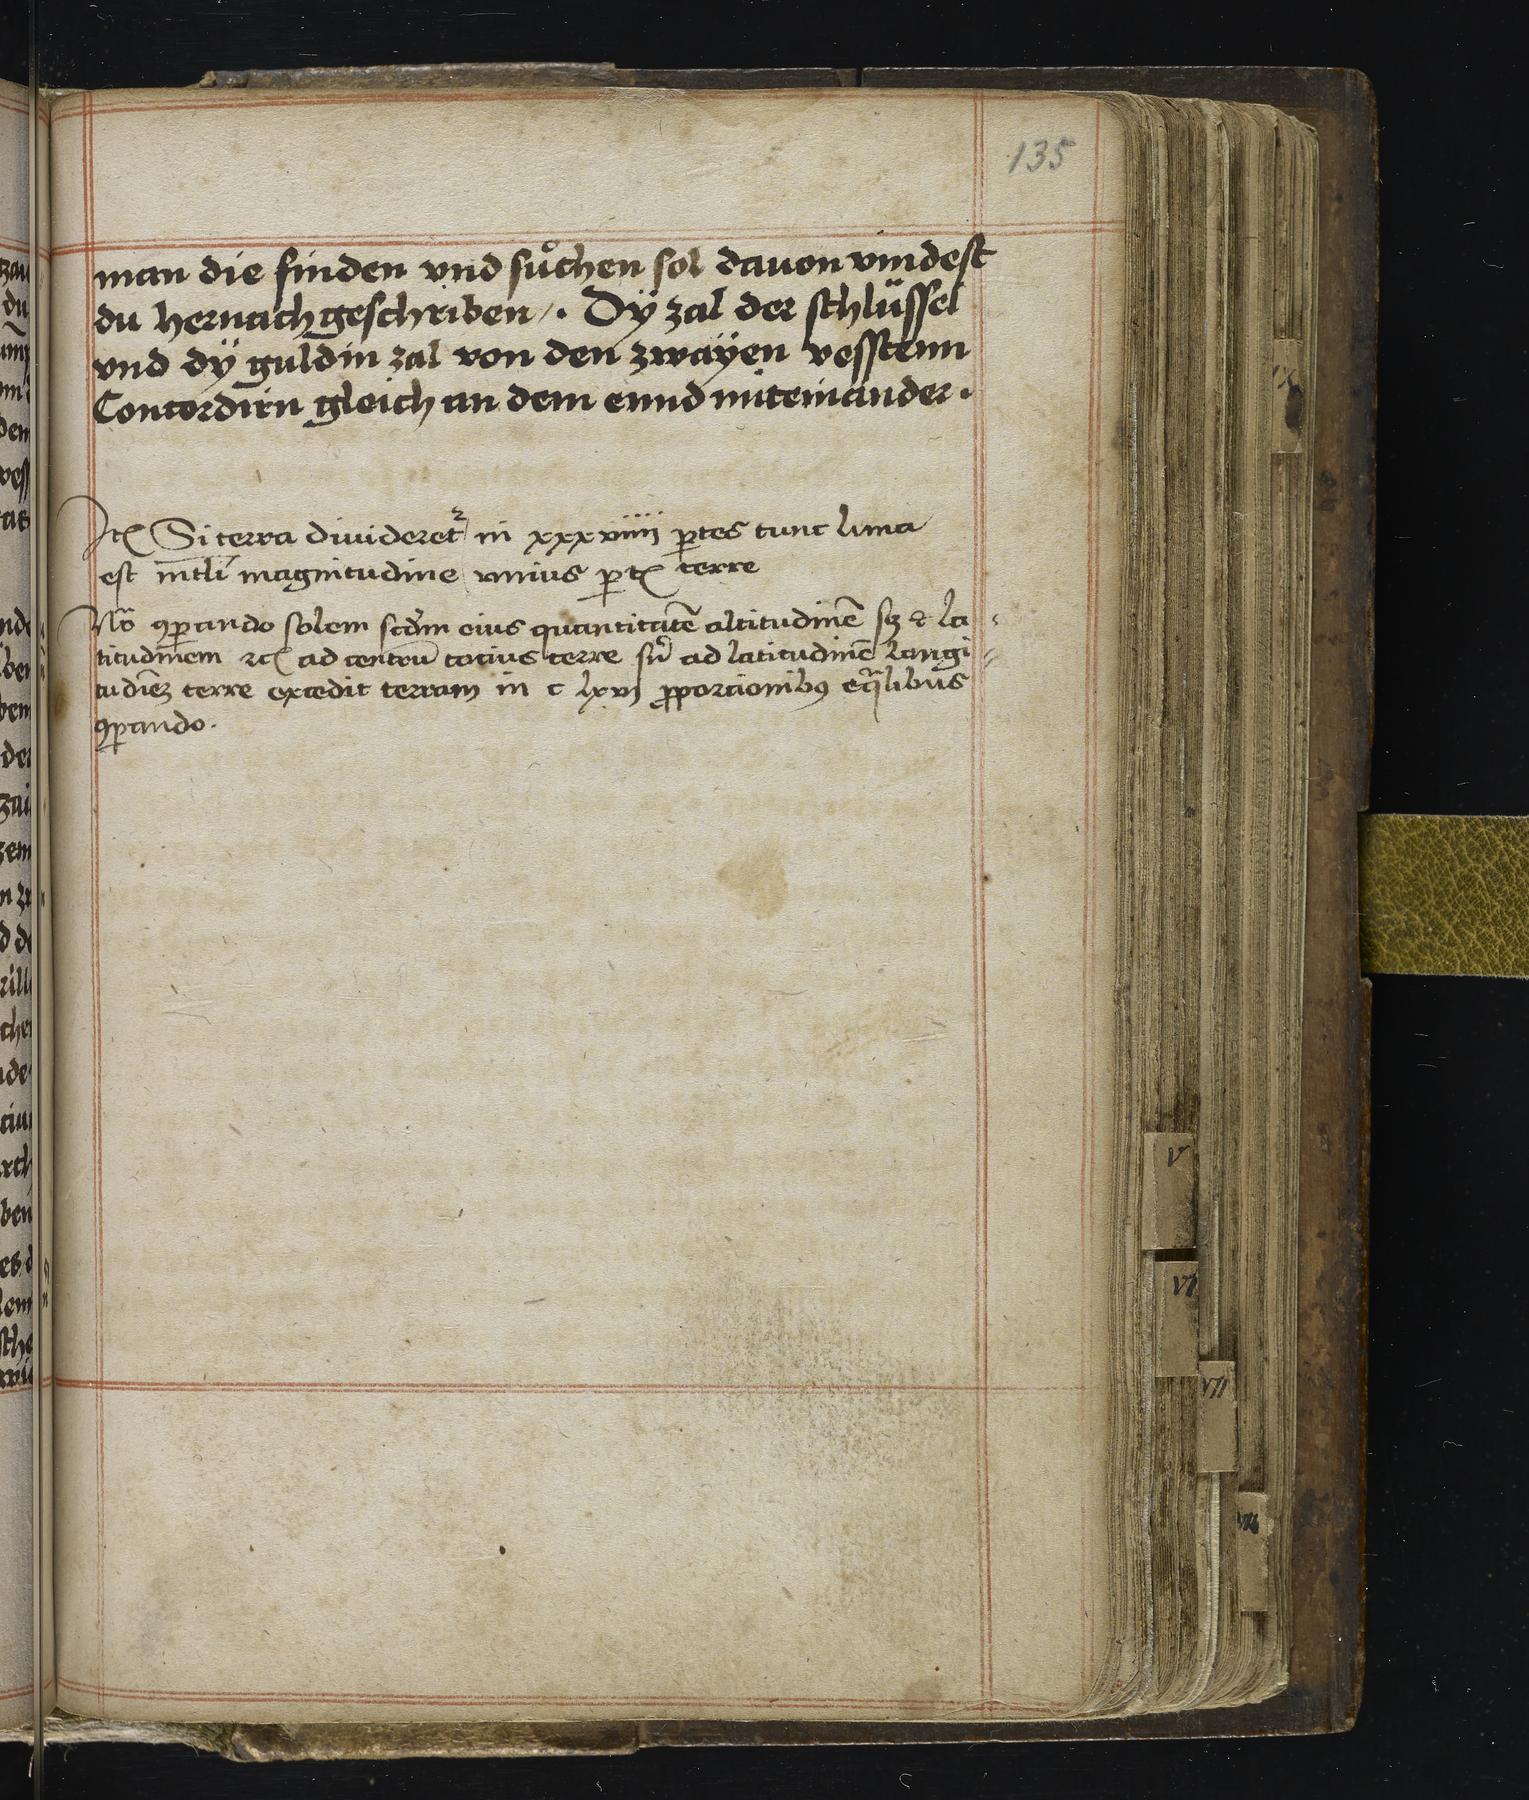 135
man die finden vnd sůchen sol dauon vindest
du hernach geschriben /. Dÿ zal der schlüssel
vnd dÿ guldin zal von den zwaÿen vesstenn
Concordirn gleich an dem ennd miteinander .
Si terra divideretr in xxxviiii ꝑtes tunc luna
est magnitudine vnius terre
ꝯꝑando solem scdm eius quantitatē altitudinē sꝫ & la
titudinem ad centrū tocius terre ad latitudinē langi
tudiēꝫ terre excedit terram in c lxvi ꝓporcionibꝯ
ꝯꝑando.
IX
V
VI
VII
VIII